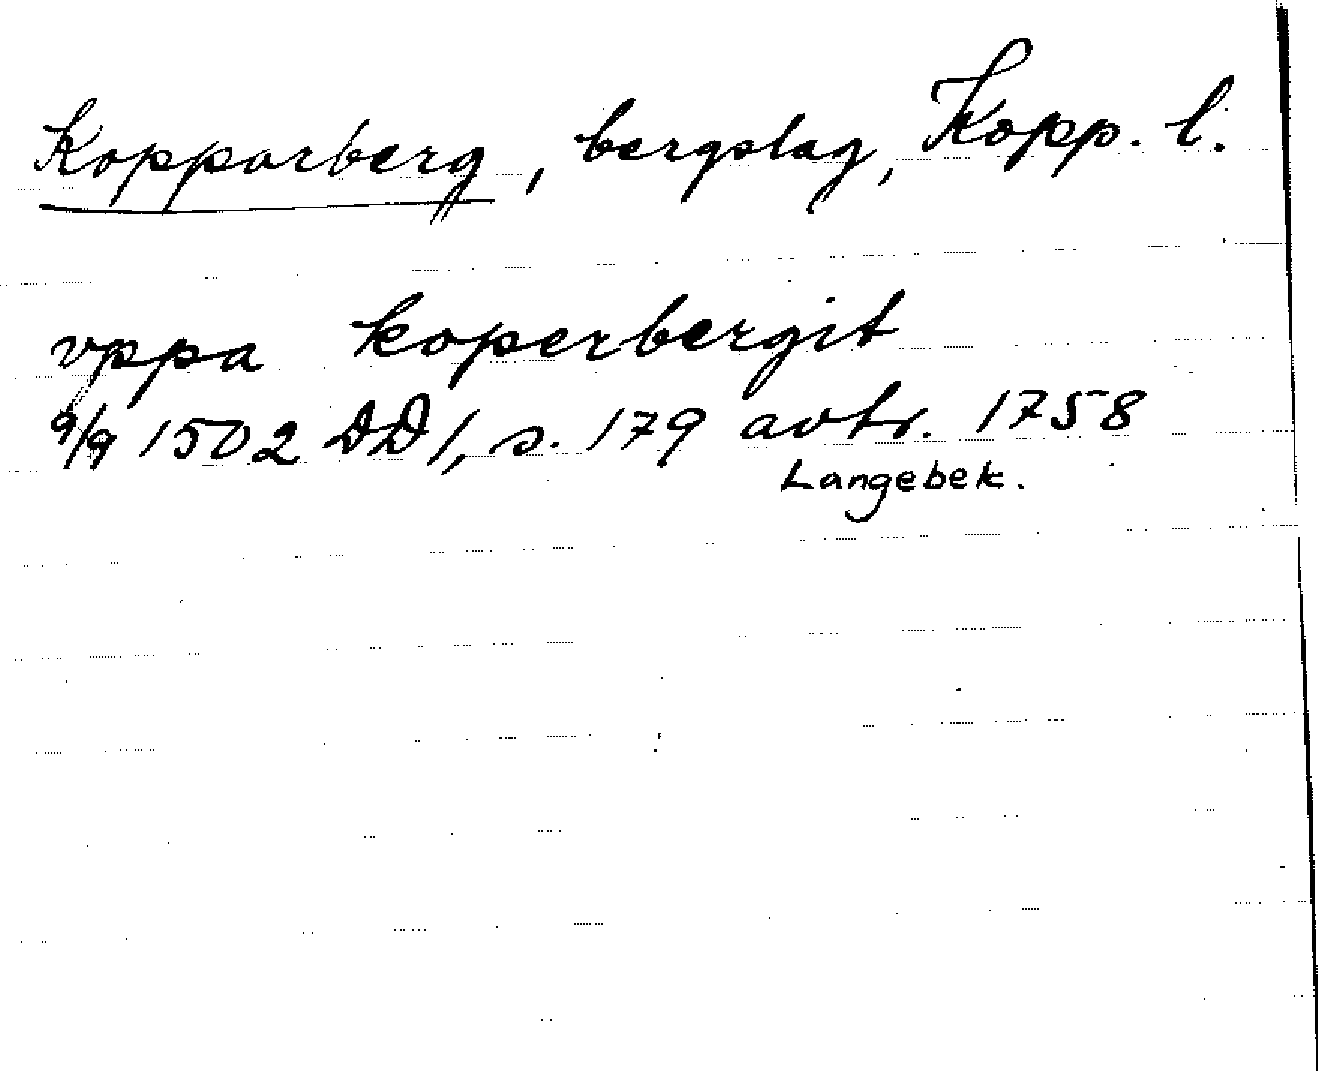 Kopparberg, bergslag, Kopp. l.
vppa koperbergit
9/9 1502 DD 1, s. 179 avtr. 1758
Langebek.